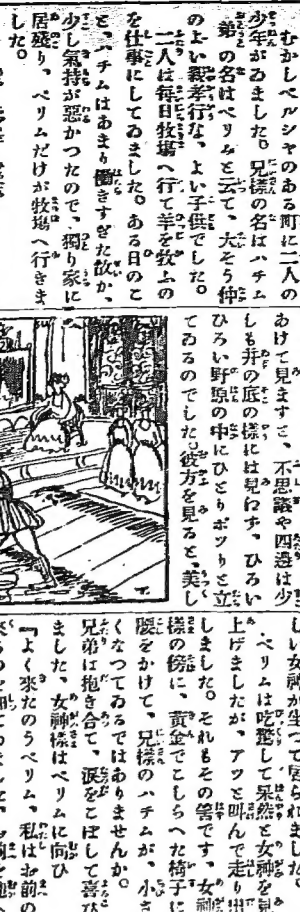 むかしペルシャのある町に二人の
少年がゐました。兄樣の名はハチム
弟の名はベリムと云て、大そう仲
のよい親孝行な、よい子供でした。
二人は毎日牧場へ行て羊を牧ふの
を仕事にしてゐました。ある日のこ
と、ハチムはあまり働きすぎた故か、
少し氣持が惡かつたので、獨り家に
居殘り、ベリムだけが牧場へ行きま
した。
あけて見ますと、不思議や四邊は少
しも井の底の樣には見わず、ひろい
ひろい野原の中にひとりポツリと立
てゐるのでした。彼方を見ると、美し
しい女神が坐つて居られました
ベリムは吃驚して呆然と女神を見
上げましたが、アツと叫んで走り出
しました。それもその筈です、女神
樣の傍に、黄金でこしらへた椅子に
腰をかけて、兄樣のハチムが、小さ
くなつてゐるではありませんか。
兄弟は抱き合て、涙をこぼして喜び
ました、女神樣はベリムに向ひ
『よく來たのうベリム、私はお前の